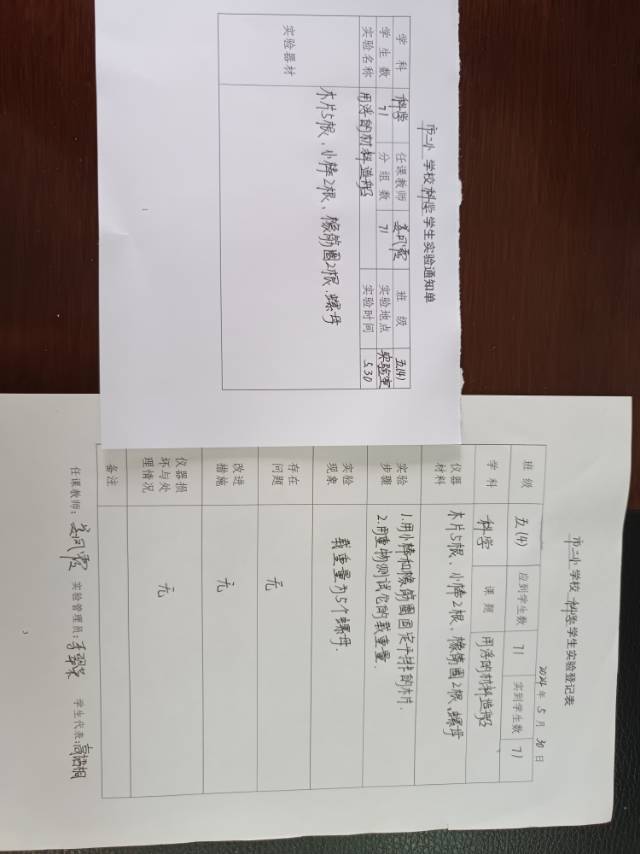 市二小 学校 科学 学生实验通知单
学 科 科学 任课教师 姜凤霞 班 级 五(4)
学 生 数 71 分 组 数 71 实验地点 实验室
实验名称 用浮的材料造船 实验时间 5.30
实验器材 木片5根、小棒2根、橡筋圈2根、螺母
市二小 学校 科学 学生实验登记表
2024年 5 月 30 日
班 级 五(4) 应到学生数 71 实到学生数 71
学 科 科学 课 题 用浮的材料造船
仪器材料 木片5根、小棒2根、橡筋圈2根、螺母
实验步骤 1.用小棒和橡筋圈固定平排的木片.
2.用重物测试它的载重量.
实验现象 载重量为5个螺母.
存在问题 无
改进措施 无
仪器损坏与处理情况 无
备注
任课教师: 姜凤霞 实验管理员: 学生代表: